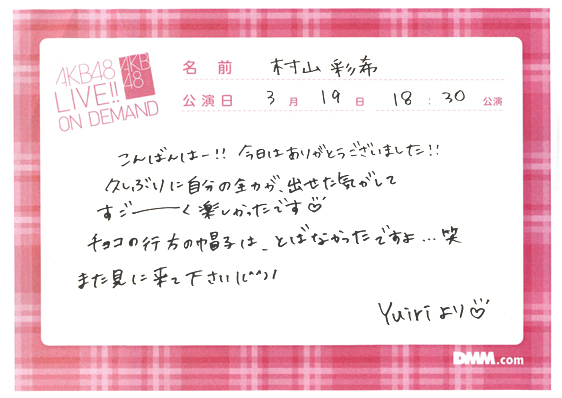 AKB48
LIVE!!
ON DEMAND
AKB
48
名前 村山彩希
公演日 3月19日 18:30公演
こんばんはー!! 今日はありがとうございました!!
久しぶりに自分の全力が、出せた気がして
すごーーく楽しかったです♡
チョコの行方の帽子は、とばなかったですよ…笑
また見に来て下さい!(^^)!
Yuiriより♡
DMM.com